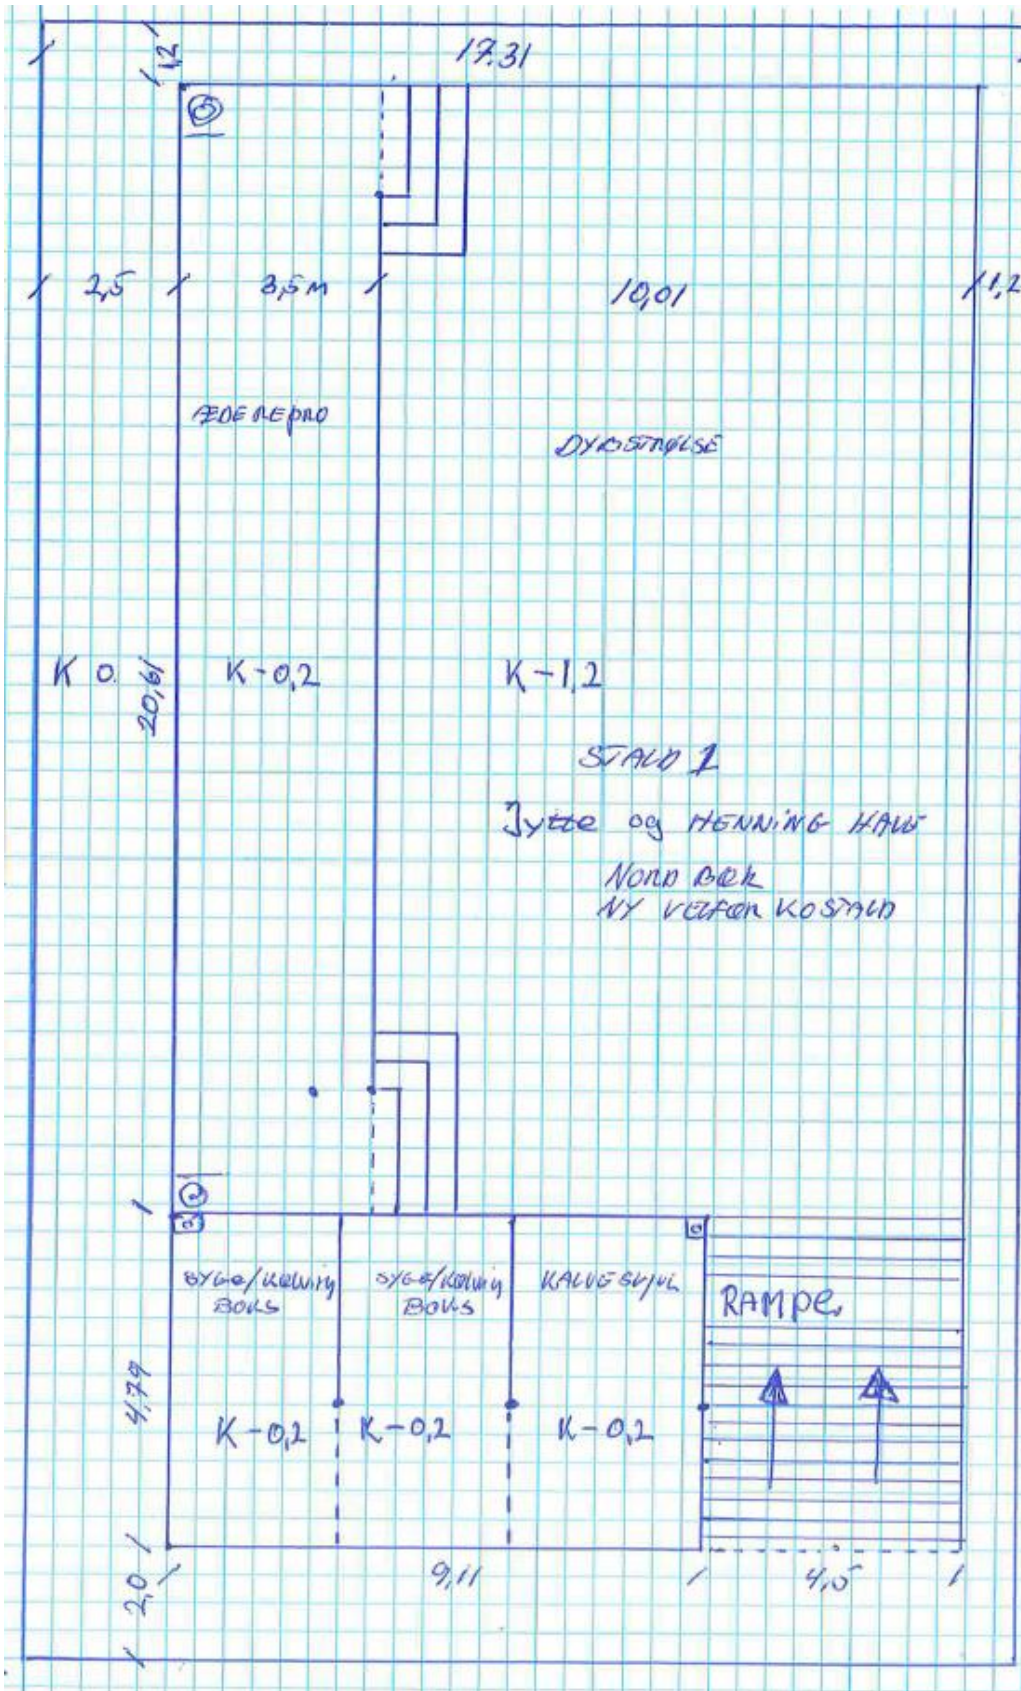 1,2
17.31
2,5
3,5 M
10,01
1,2
ÆDEREPRO
DYBSTRØLSE
K 0.
20,61
K-0,2
K-1,2
STALD 1
Jytte og HENNING HAVE
NORD BÆK
NY VELFÆR KOSTALD
2
3
SYGE/KÆLVING
BOKS
SYGE/KÆLVING
BOKS
KALVESKJUL
RAMPE
4,79
K-0,2
K-0,2
K-0,2
2,0
9,11
4,5